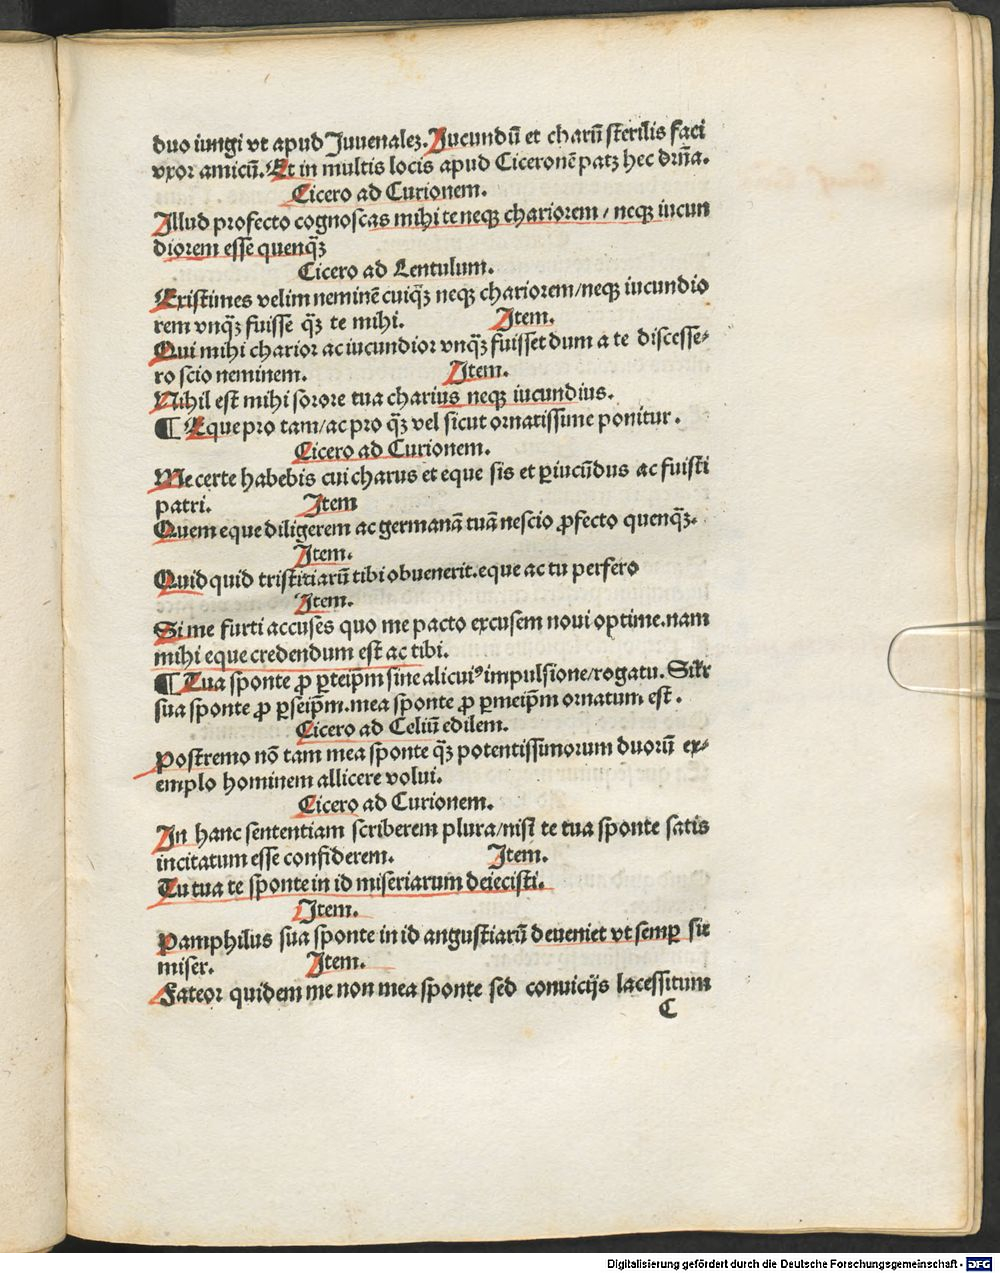 duo iungi vt apud Juuenalez. Jucundū et charū sterilis faci
vxor amicū. Et in multis locis apud Ciceronē patꝫ hec drn̄a.
Cicero ad Curionem.
Illud profecto cognoscas mihi te neqꝫ chariorem / neqꝫ iucun
diorem esse quenqꝫ̄
Cicero ad Lentulum.
Existimes velim neminē cuiqꝫ̄ neqꝫ chariorem/neqꝫ iucundio
rem vnqꝫ̄ fuisse qꝫ̄ te mihi. Item.
Qui mihi charior ac iucundior vnqꝫ̄ fuisset dum a te discesse⸗
ro scio neminem. Item.
Nihil est mihi sorore tua charius neqꝫ iucundius.
¶ Eque pro tam/ac pro qꝫ̄ vel sicut ornatissime ponitur.
Cicero ad Curionem.
Me certe habebis cui charus et eque sis et ꝑiucūdus ac fuisti
patri. Item
Quem eque diligerem ac germanā tuā nescio ꝓfecto quenqꝫ̄.
Item.
Quid quid tristitiarū tibi obuenerit. eque ac tu perfero
Item.
Si me furti accuses quo me pacto excusem noui optime. nam
mihi eque credendum est ac tibi.
¶ Tua sponte ꝓ ꝑteip̄m sine alicuiꝰ impulsione/rogatu. Silr
sua sponte ꝓ ꝑseip̄m. mea sponte ꝓ ꝑmeip̄m ornatum est.
Cicero ad Celiū edilem.
Postremo nō tam mea sponte qꝫ̄ potentissimorum duorū ex⸗
emplo hominem allicere volui.
Cicero ad Curionem.
In hanc sententiam scriberem plura/nisi te tua sponte satis
incitatum esse confiderem. Item.
Tu tua te sponte in id miseriarum deiecisti.
Item.
Pamphilus sua sponte in id angustiarū deueniet vt semꝑ sit
miser. Item.
Fateor quidem me non mea sponte sed conuicijs lacessitum
C
Digitalisierung gefördert durch die Deutsche Forschungsgemeinschaft - DFG